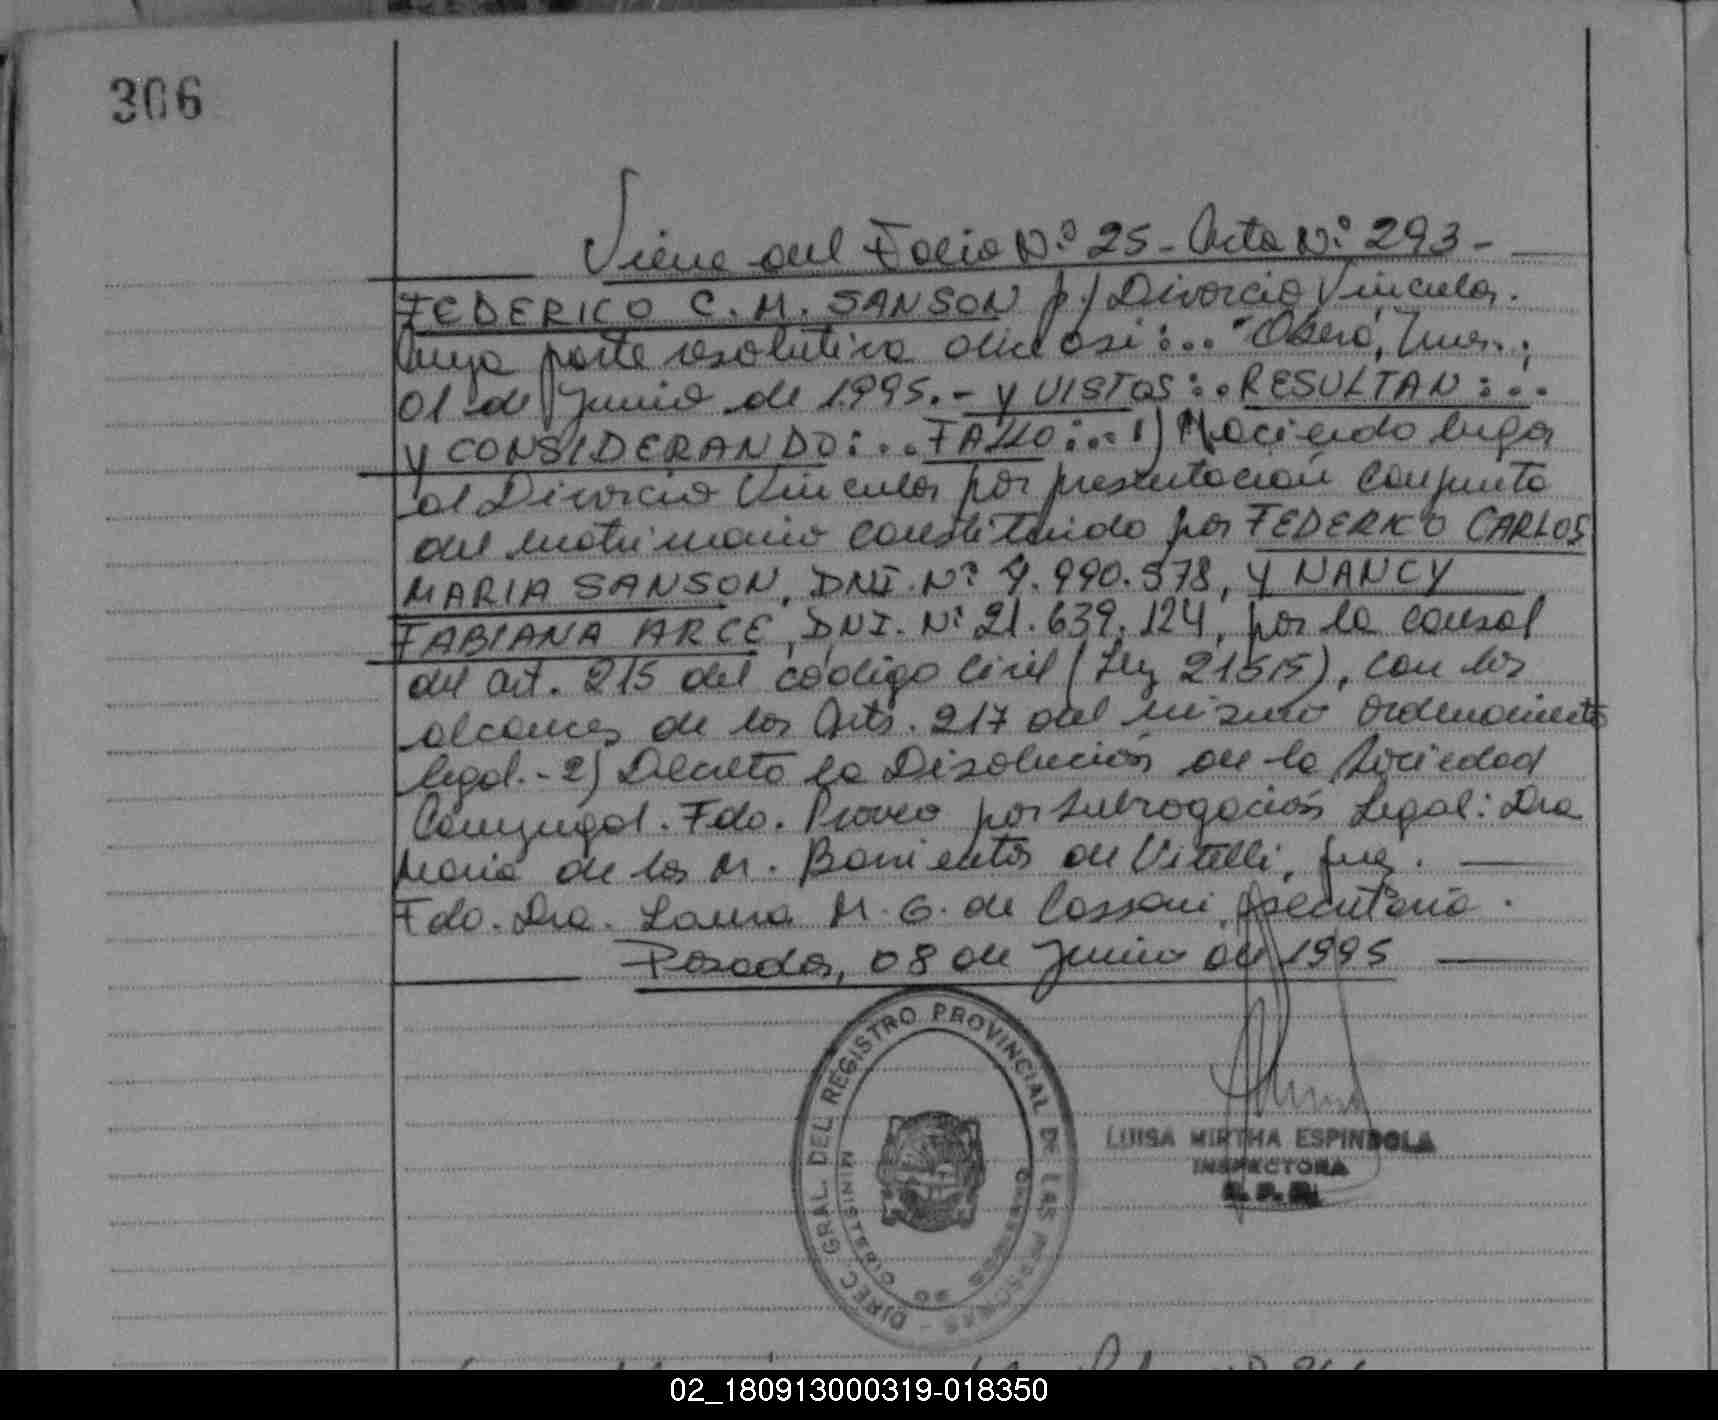 306
Viene del Folio Nº 25 - Acta Nº 293 -
FEDERICO C. M. SANSON p./ Divorcio Vincular.
Cuya parte resolutiva dice así:... "Oberá, Mnes.,
01 de Junio de 1995.- y VISTOS:.. RESULTAN:...
y CONSIDERANDO:... FALLO:... 1) Haciendo lugar
al Divorcio Vincular por presentación conjunta
del matrimonio constituido por FEDERICO CARLOS
MARIA SANSON, DNI. Nº 7.990.578, y NANCY
FABIANA ARCE, DNI. Nº 21.639.124, por la causal
del art. 215 del código Civil (Ley 21515), con los
alcances de los Arts. 217 del mismo ordenamiento
legal.- 2) Decreto la Disolución de la Sociedad
Conyugal. Fdo. Proveo por Subrogación Legal: Dra
María de los M. Barrientos de Vitelli, Juez.
Fdo. Dra. Laura M. G. de Cassoni, Secretaria.
Posadas, 08 de Junio de 1995
DIREC. GRAL. DEL REGISTRO PROVINCIAL DE LAS PERSONAS -
MINISTERIO DE GOBIERNO
LUISA MIRTHA ESPINDOLA
INSPECTORA
R. P. P.
02_180913000319-018350